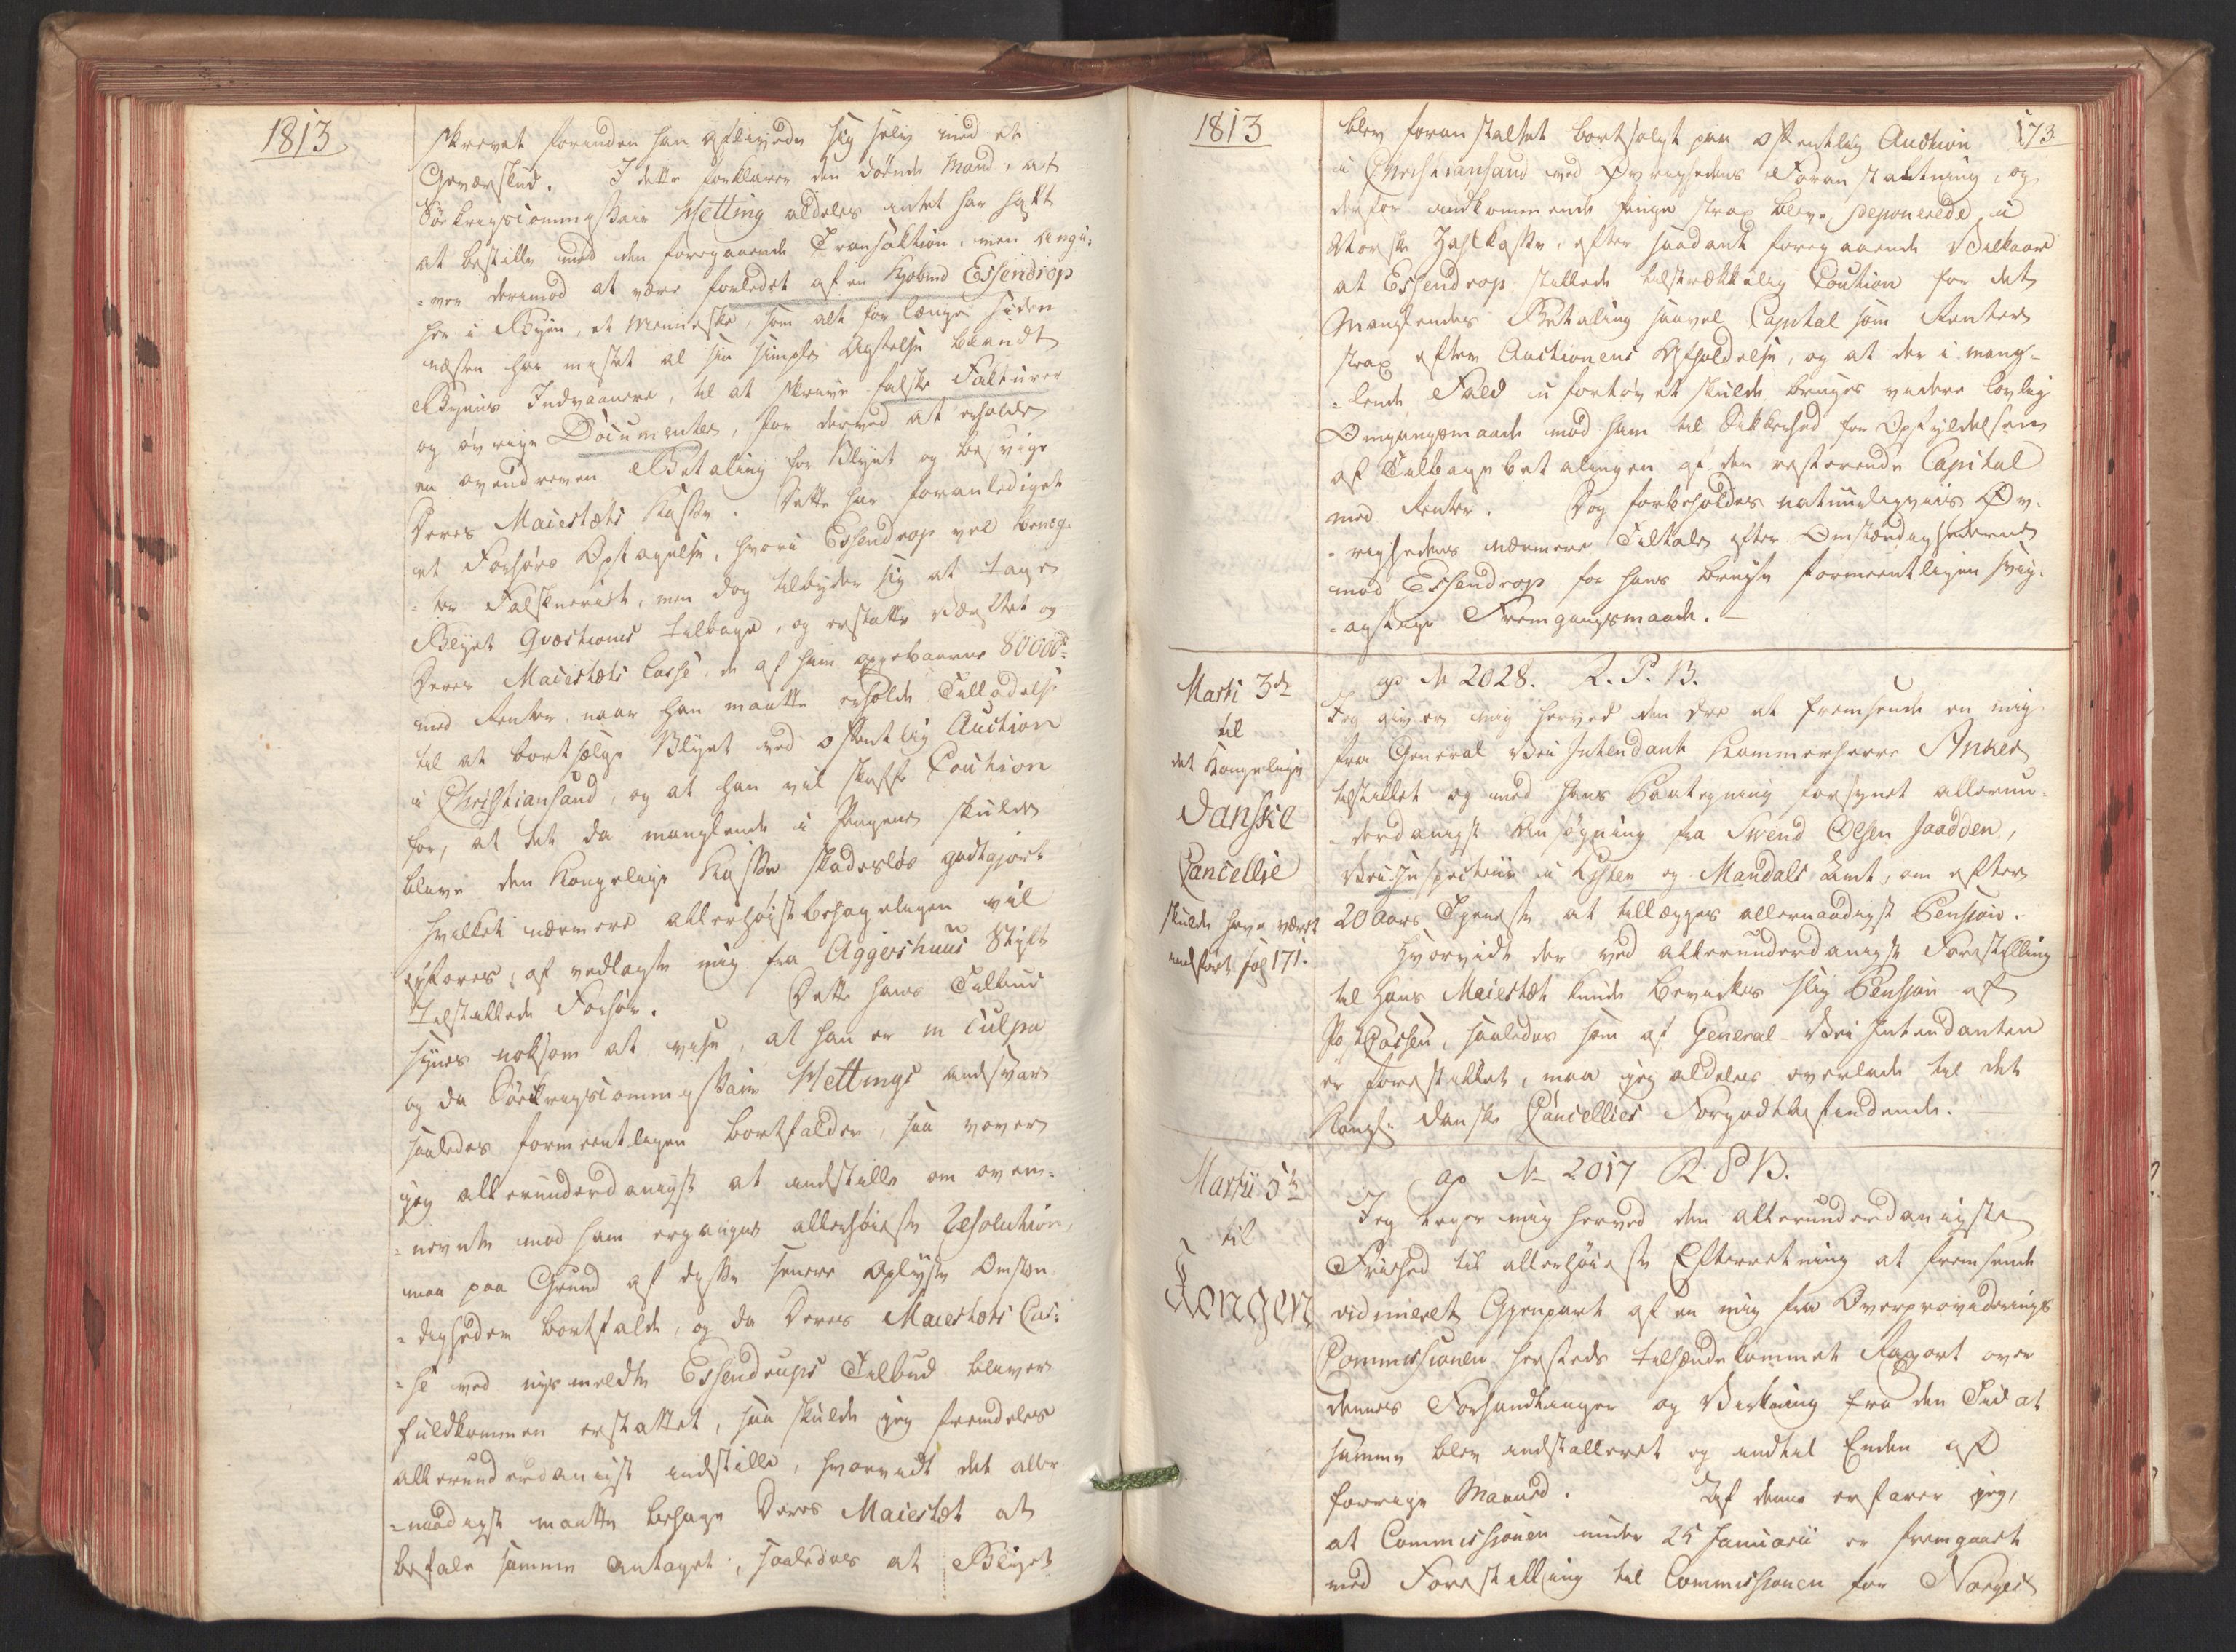 1813
skrevet forinden han aflivede sig selv med et
Geværskud. I dette forklarer den døende Mand, at
Søekrigscommissair Metting aldeles intet har haft
at bestille med den foregaaende Transaktion, men angi-
=ver derimod at være forledet af en Kjøbmd Essendrop
her i Byen, et Menneske, som alt for længe siden
næsten har mistet al sin simple Agtelse blandt
Byens Indvaanere, til at skrive falske Fakturer
og øvrige Documenter, for derved at erholde
en overdreven Betaling for Blyet og besvige
Deres Maiestæts Kasse. Dette har foranlediget
et Forhørs Optagelse, hvori Essendrop vel beneg-
=ter Falskneriet, men dog tilbyder sig at tage
Blyet Qvæstionis tilbage, og erstatte Værftet og
Deres Maiestæts Casse, de af ham oppebaarne 80000
med Renter, naar han maatte erholde Tilladelse
til at bortsælge Blyet ved offentlig Auction
i Christiansand, og at han vil skaffe Coution
for, at det da manglende i Pengene skulde
blive den Kongelige Kasse skadesløs godtgjort
hvilket nærmere allerhøistbehagelig vil
erfares, af vedlagte mig fra Aggershuus Stift
Tilstillede Forhør. Dette hans Tilbud
synes noksom at vise, at han er in culpa
og da Søekrigscommissair Mettings Ansvar
saaledes formeentligen bortfalder, saa vover
jeg allerunderdanigst at indstille om oven-
=nevnte mod ham ergangne allerhøieste Resolution,
maa paa Grund af disse senere oplyste Omstæn
=digheder bortfalde, og da Deres Maiestæts Cas-
=se ved nysmeldte Essendrups Tilbud bliver
fuldkommen erstattet, saa skulde jeg fremdeles
allerunderdanigst indstille, hvorvidt det aller
=naadigst maatte behage Deres Maiestæt at
befale samme antaget, saaledes at Blyet
1813
173
blev foranstaltet bortsolgt paa offentlig Auction
i Christiansand ved Øvrighedens Foranstaltning, og
derfor indkommende Penge strax bleve deponerede i
Norske Zahlkasse, efter saadant foregaaende Vilkaar
at Essendrop stillede tilstrækkelig Coution for det
Manglendes Betaling saavel Capital som Renter
strax efter Auctionens Afholdelse, og at der i mang-
=lende Fald i fortøvet skulde bruges videre lovlig
Omgangsmaade mod ham til Sikkerhed for Opfyldelsen
af Tilbagebetalingen af den resterende Capital
med Renter. Dog forbeholdes naturligviis Øv-
=righedens nærmere Tiltale efter Omstændighederne
mod Essendrop for hans brugte formeentligen svig-
=agtige Fremgangsmaade. —
Marti 3de
til
det Kongelige
Danske
Cancellie
skulde have været
indført fol 171.
ap № 2028. R. P. B.
Jeg giver mig herved den Ære at fremsende en mig
fra General Vei Intendant Kammerherre Anker
tilstillet og med hans Paategning forsynet allerun-
=derdanigst Ansøgning fra Svend Olsen Saadden,
Vei-Inspecteur i Lister og Mandals Amt, om efter
20 Aars Tjeneste at tillægges allernaadigst Pension.
Hvorvidt der ved allerunderdanigst Forestilling
til Hans Maiestæt kunde bevirkes slig Pension af
Post Cassen, saaledes som af General-Vei Intendanten
er forestillet, maa jeg aldeles overlade til det
Kongl. Danske Cancellies Forgodtbefindende.
Martii 5te
til
Kongen
ap № 2017 R. P B.
Jeg tager mig herved den allerunderdanigste
Frihed til allerhøieste Efterretning at fremsende
vidimeret Gjenpart af en mig fra Overproviderings
Commissionen hersteds tilhændekommet Raport over
dennes Forhandlinger og Virkning fra den Tid at
samme blev indstalleret og indtil Enden af
forrige Maaned. Af denne erfarer jeg,
at Commissionen under 25 Januarii er fremgaaet
med Forestilling til Commissionen for Norges